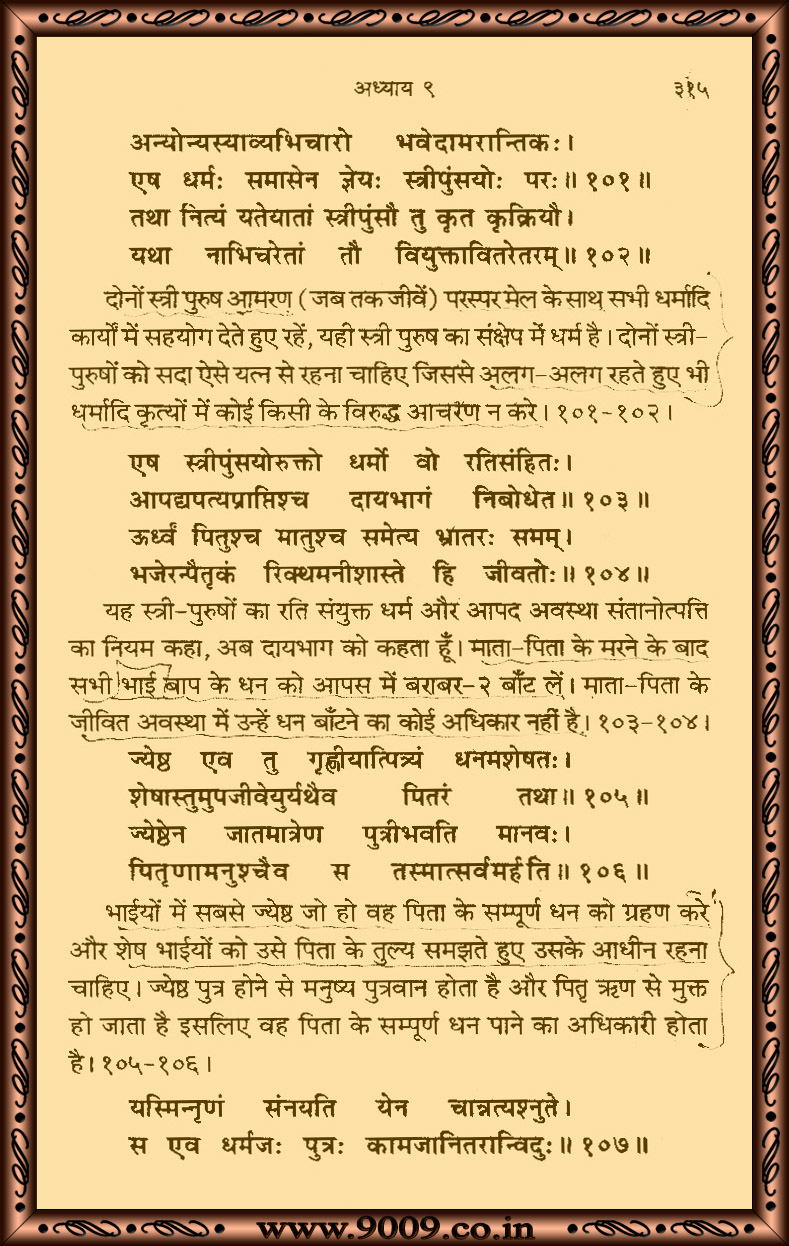 अध्याय ९ ३१५
अन्योन्यस्याव्यभिचारो भवेदामरान्तिकः।
एष धर्मः समासेन ज्ञेयः स्त्रीपुंसयोः परः॥ १०१॥
तथा नित्यं यतेयातां स्त्रीपुंसौ तु कृत कृक्रियौ।
यथा नाभिचरेतां तौ वियुक्तावितरेतरम्॥ १०२॥
दोनों स्त्री पुरुष आमरण (जब तक जीवें) परस्पर मेल के साथ सभी धर्मादि
कार्यों में सहयोग देते हुए रहें, यही स्त्री पुरुष का संक्षेप में धर्म है। दोनों स्त्री-
पुरुषों को सदा ऐसे यत्न से रहना चाहिए जिससे अलग-अलग रहते हुए भी
धर्मादि कृत्यों में कोई किसी के विरुद्ध आचरण न करे। १०१-१०२।
एष स्त्रीपुंसयोरुक्तो धर्मो वो रतिसंहितः।
आपद्यपत्यप्राप्तिश्च दायभागं निबोधेत॥ १०३॥
ऊर्ध्वं पितुश्च मातुश्च समेत्य भ्रातरः समम्।
भजेरन्पैतृकं रिक्थमनीशास्ते हि जीवतोः॥ १०४॥
यह स्त्री-पुरुषों का रति संयुक्त धर्म और आपद अवस्था संतानोत्पत्ति
का नियम कहा, अब दायभाग को कहता हूँ। माता-पिता के मरने के बाद
सभी भाई बाप के धन को आपस में बराबर-२ बाँट लें। माता-पिता के
जीवित अवस्था में उन्हें धन बाँटने का कोई अधिकार नहीं है। १०३-१०४।
ज्येष्ठ एव तु गृह्णीयात्पित्र्यं धनमशेषतः।
शेषास्तुमुपजीवेयुर्यथैव पितरं तथा॥ १०५॥
ज्येष्ठेन जातमात्रेण पुत्रीभवति मानवः।
पितृणामनुश्चैव स तस्मात्सर्वमर्हति॥ १०६॥
भाईयों में सबसे ज्येष्ठ जो हो वह पिता के सम्पूर्ण धन को ग्रहण करे
और शेष भाईयों को उसे पिता के तुल्य समझते हुए उसके आधीन रहना
चाहिए। ज्येष्ठ पुत्र होने से मनुष्य पुत्रवान होता है और पितृ ऋण से मुक्त
हो जाता है इसलिए वह पिता के सम्पूर्ण धन पाने का अधिकारी होता
है। १०५-१०६।
यस्मिन्नृणं संनयति येन चान्नत्यश्नुते।
स एव धर्मजः पुत्रः कामजानितरान्विदुः॥ १०७॥
www.9009.co.in